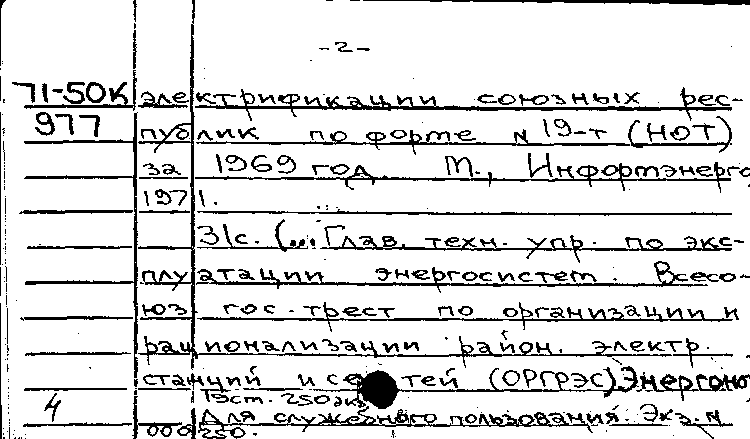 -2-
71-50К электрификации союзных рес-
977 публик по форме N 19-т (НОТ)
за 1969 год. М., Информэнерго
1971.
31с. (... Глав. техн. упр. по экс-
плуатации энергосистем. Всесо-
юз гос. трест по организации и
рационализации район. электр.
станций и сетей (ОРГРЭС) Энергоно
15 ст. 250 экз
4 Для служебного пользования. Экз. N
000250.